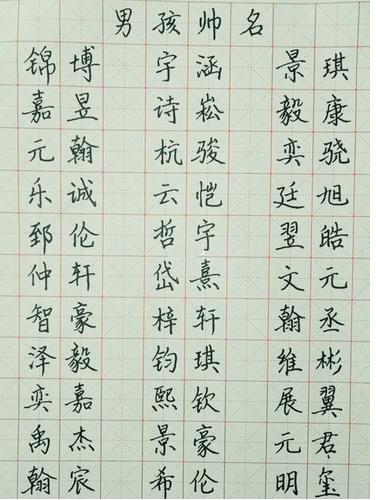 男孩帅名
锦博 宇涵 景琪
嘉昱 诗崧 毅康
元翰 杭骏 奕骁
乐诚 云恺 廷旭
郅伦 哲宇 翌皓
仲轩 岱熹 文元
智豪 梓轩 翰丞
泽毅 钧琪 维彬
奕嘉 熙钦 展翼
禹杰 景豪 元君
翰宸 希伦 明玺